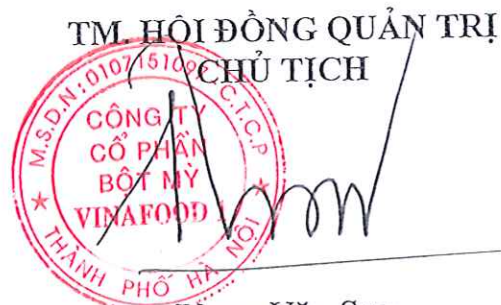 TM. HỘI ĐỒNG QUẢN TRỊ
CHỦ TỊCH
M.S.D.N: 0107151092 C.T.C.P
CÔNG TY
CỔ PHẦN
BỘT MỲ
VINAFOOD 1
THÀNH PHỐ HÀ NỘI
Văn